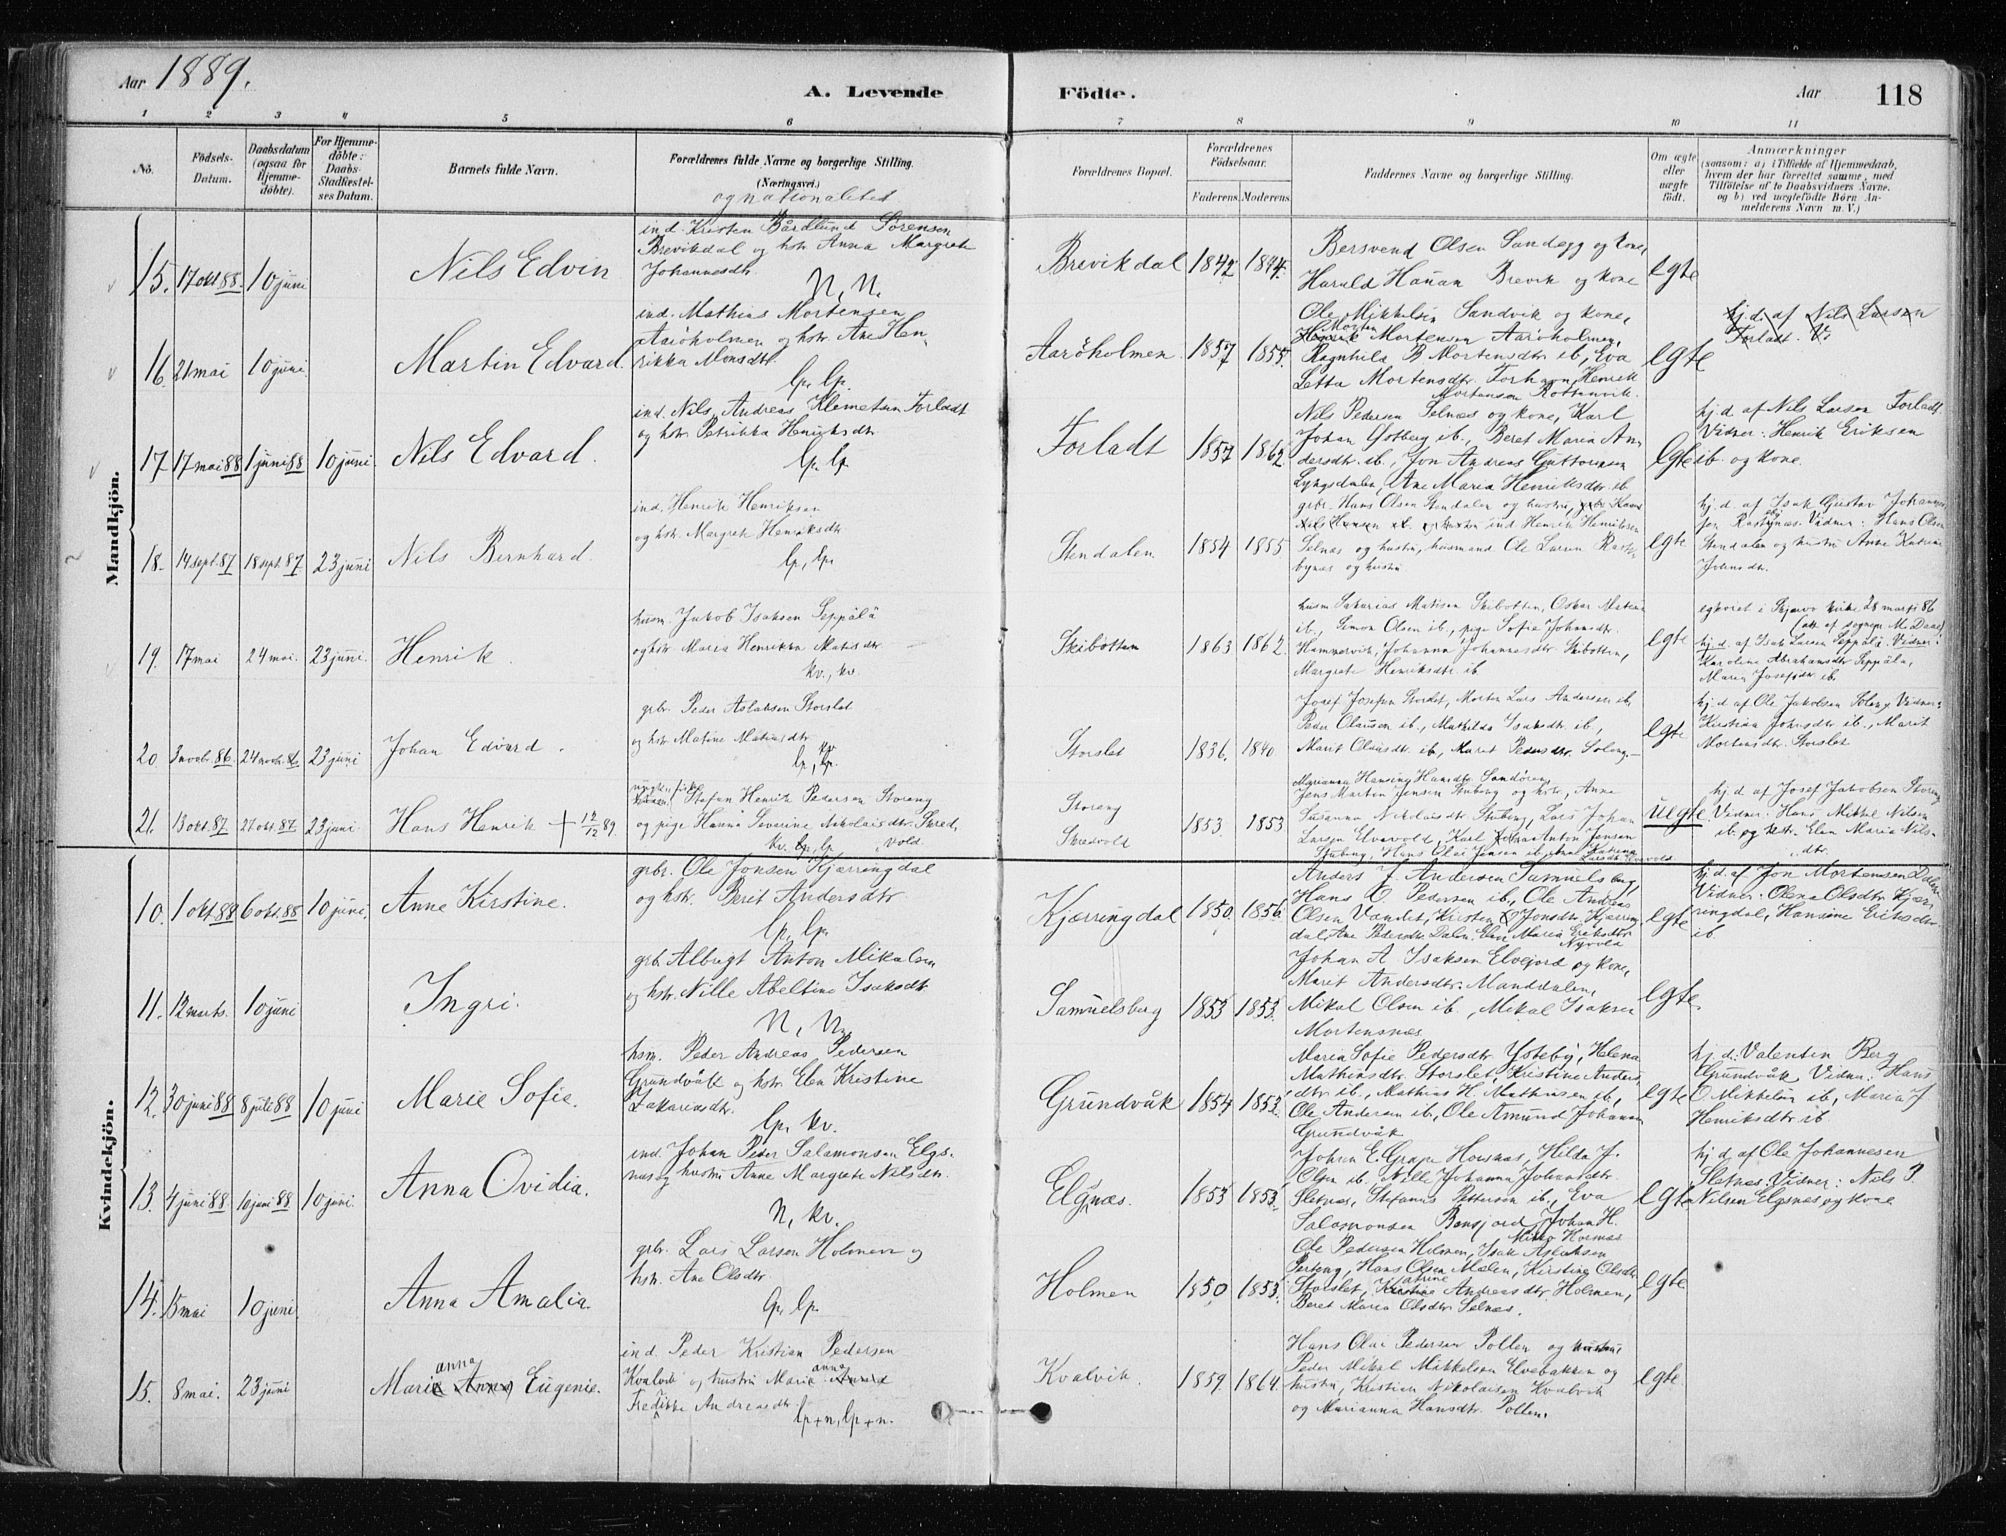 Aar 1889.
A. Levende
Födte.
Aar
118
1 2 3 4 5 6 7 8 9 10 11
No.
Födsels-Datum.
Daabsdatum (ogsaa for Hjemme-döbte).
For Hjemme-döbte: Daabs-Stadfæstel-ses Datum.
Barnets fulde Navn.
Forældrenes fulde Navne og borgerlige Stilling.
(Næringsvei.)
og nationalitet
Forældrenes Bopæl.
Forældrenes Födselsaar.
Faderens. Moderens.
Faddernes Navne og borgerlige Stilling.
Om ægte eller uægte födt.
Anmærkninger
(saasom: a) i Tilfælde af Hjemmedaab, hvem der har forrettet samme, med Tilföielse af to Daabsvidners Navne. og b) ved uægtefödte Börn Anmelderens Navn m. V.)
Mandkjön.
15. 17 okt 88. 10 juni
Nils Edvin
ind. Kristen Bårdlund Sörensen
Brevikdal og hstr. Anna Margrete
Johannesdtr.
N, N.
Brevikdal 1842 1844.
Bersvend Olsen Sandegg og kone,
Harald Hanan Brevik og kone
egte
16. 21 mai 10 juni
Martin Edvard
ind. Mathias Mortensen
Aaröholmen og hstr. Ane Hen-
rikka Monsdtr.
lp, lp.
Aaröholmen 1857 1855.
Ole Mikkelsen Sandvik og kone,
Morten
Henrik Mortensen Aaröholmen,
Ragnhild B Mortensdtr ib., Eva
Letta Mortensdtr. Forh
Henrik
Mortensen Rottenvik.
egte
hj.d. af Nils Larsen
Forladt. V:
17 17 mai 88 1 juni 88 10 juni
Nils Edvard.
ind. Nils Andreas Klemetsen Forladt
og hstr. Petrikka Henriksdtr
lp. lp
Forladt 1857 1862.
Nils Pedersen Selnæs og kone, Karl
Johan Ostberg ib., Beret Maria An-
dersdtr. ib., Jon Andreas Guttormsen
Lyngsdalen, Ane Maria Henriksdtr. ib.
egte
hj.d. af Nils Larsen Forladt
Vidner: Henrik Eriksen
ib. og kone.
18. 14 sept. 87 18 sept. 87 23 juni
Nils Bernhard.
ind. Henrik Henriksen
og hstr. Margrete Henriksdtr
lp, lp.
Stendalen 1854 1855
gbr. Hans Olsen Stendalen og hustru,
ind Henrik Henriksen
Selnæs og hustru, husmand Ole Larsen Rast-
bynæs og hustru
egte
hj.d. af Isak Gustav Johannes-
sen Rastbynæs. Vidner: Hans Olsen
Stendalen og hustru Anne Katrine
Johnsdtr.
19. 17 mai 24 mai. 23 juni.
Henrik.
husm. Jakob Isaksen Seppälä
og hstr. Maria Henrikka Matisdtr
kv., kv.
Skibotten 1863 1862.
husm Sakarias Matisen Skibotten, Oskar Matisen
ib., Simon Olsen ib., pige Sofie Johansdtr.
Hammervik, Johanna Johannesdtr Skibotten,
Margrete Henriksdtr ib.
egte
egteviet i Skjervö kirke 28 marts 86
hj.d. af Isak Larsen Seppälä. Vidner:
Karoline Abrahamsdtr Seppäla,
Maria Josefsdtr ib.
20 3 novbr. 86 24 novbr. 86 23 juni
Johan Edvard.
gbr. Peder Aslaksen Storslet
og hstr. Matine Matiasdtr
lp, lp.
Storslet 1836. 1840
Josef Josefsen Storslet, Morten Lars Andersen ib.,
Peder Olausen ib., Mathilde Isaksdtr ib.,
Marit Olausdtr ib., Maret Pedersdtr. Soleng.
egte
hj.d. af Ole Jakobsen Soleng Vidner:
Kristine Johnsdtr. ib., Marit
Mortensdtr. Storslet
21. 13 okt. 87 27 okt. 87 23 juni
Hans Henrik + 12/12 89.
Stefan Henrik Pedersen Storeng
og pige Hanna Severine Nikolaisdtr Skred-
vold.
kv. lp, lp
Storeng
Skredvold
1853. 1853
Marianna Hansine Hansdtr Sandören,
Jens Martin Jensen Stuberg og hstr, Anne
Susanna Nikolaisdtr Stuberg, Lars Johan
Larsen Elvevold, Karl Anton Jensen
Stuberg, Hans Olai Jensen ib.
uegte
hj.d. af Josef Jakobsen Storeng
Vidner: Hans Mikkel Nilsen
ib. og hstr. Elen Maria Nils-
dtr.
Kvindekjön.
10. 1 okt 88 6 okt. 88 10 juni.
Anne Kirstine.
gbr. Ole Jonsen Kjærringdal
og hstr. Berit Andersdtr
lp, lp.
Kjærringdal 1850. 1856.
Anders J. Andersen Samuelsberg,
Hans O. Pedersen ib., Ole Andreas
Olsen Vandet, Kirsten Jonsdtr. Kjærring-
dal, Ane Pedersdtr Dalen, Elen Maria Eriksdtr
Nyvold
egte
hj.d. af Jon Mortensen Dalen
Vidner: Olena Olsdtr Kjær-
ringdal, Hansine Eriksdtr
ib.
11. 12 marts. 10 juni
Ingri.
gbr. Albrigt Anton Mikalsen
og hstr. Nille Abeltine Isaksdtr.
N, N.
Samuelsberg 1853 1853.
Johan A Isaksen Elvejord og kone,
Marit Andersdtr. Manddalen,
Mikal Olsen ib., Mikal Isaksen
Mortensnæs
egte.
12. 30 juni 88 8 juli 88 10 juni
Marie Sofie.
hsm. Peder Andreas Pedersen
Grundvåk og hstr. Elen Kristine
Zakariasdtr.
lp, kv.
Grundvåk 1854 1853.
Maria Sofie Pedersdtr. Ysteby, Helena
Mathiasdtr. Storslet, Kristine Anders-
dtr ib., Mathias H. Mathisen ib.,
Ole Andersen ib., Ole Amund Johannsen
Grundvåk
egte
hj.d.: Valentin Berg
Grundvåk, Vidner: Hans
O Mikkelsen ib., Maria J
Henriksdtr ib
13. 4 juni 88 10 juni 88 10 juni.
Anna Ovidia.
ind. Johan Peder Salamonsen Elgs-
næs og hustru Anne Margrete Nilsdtr.
N, kv.
Elgsnæs. 1853 1853.
Johan E. Grape Horsnæs, Hilda J.
Olsen ib., Nille Johanna Johansdtr
Sletnæs, Stefanus Pettersen ib., Eva
Salomonsen Bensjord, Johan H.
egte
hj.d. af Ole Johannesen
Sletnæs. Vidner: Nils P.
Nilsen Elgsnæs og kone
14. 15 mai 10 juni.
Anna Amalia.
gbr. Lars Larsen Holmen og
hstr. Ane Olsdtr.
lp, lp.
Holmen 1850 1853.
Ole Pedersen Holmen, Isak Aslaksen
Perteng, Hans Olsen Mælen, Kirstine Olsdtr
Storslet, Katrine Andreasdtr Holmen,
Beret Maria Olsdtr Selnæs.
egte
15. 8 mai. 23 juni
anna
Marie Anna Eugenie.
ind. Peder Kristian Pedersen
Kvalvik og hustru Marie anna
Fredikke Andreasdtr
lp+n, lp+n.
Kvalvik 1859. 1864.
Hans Olai Pedersen Pollen og hustru,
Peder Mikal Mikkelsen Elvebakken og
hustru, Kristian Nikolaisen Kvalvik
og Marianna Hansdtr. Pollen.
egte.